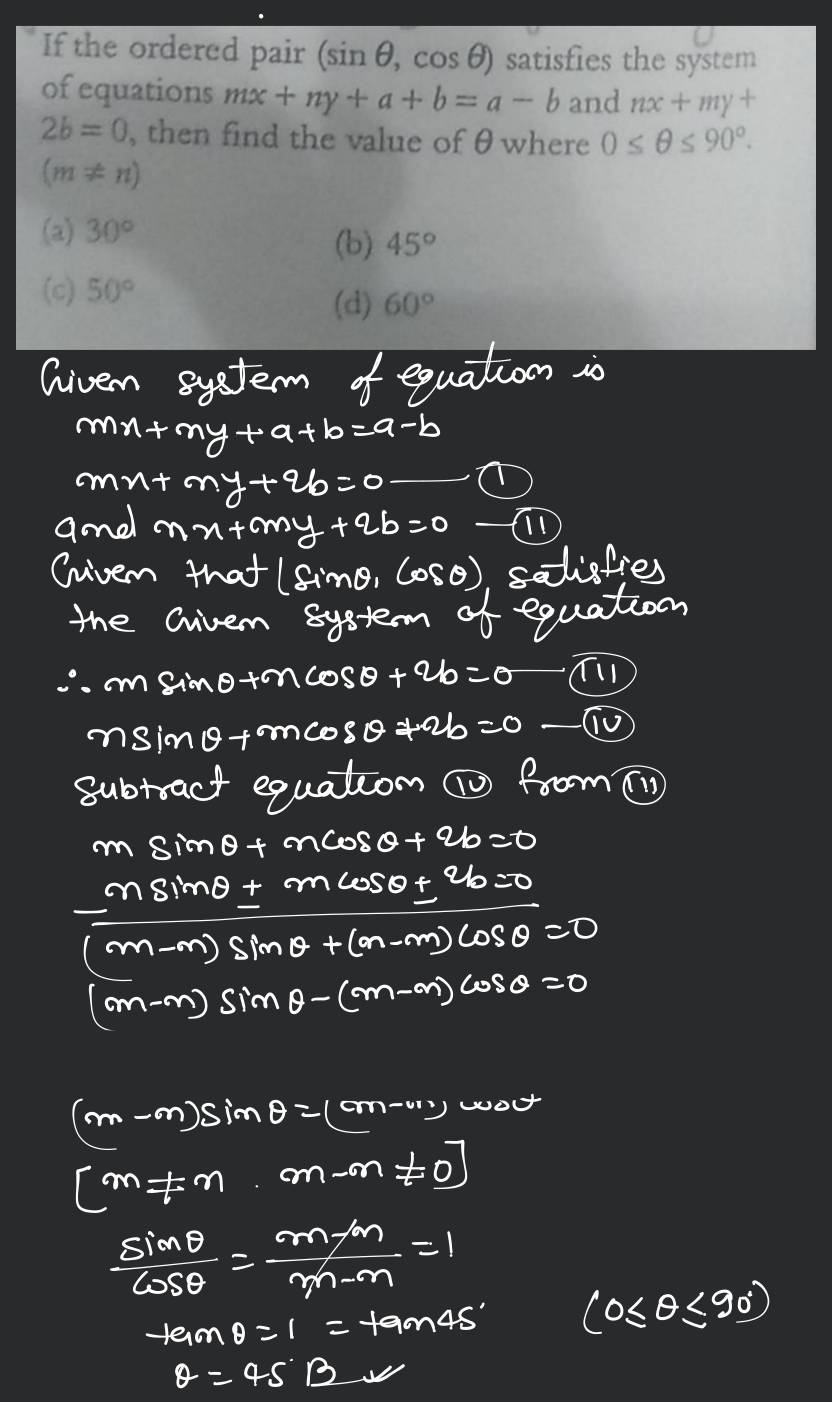 If the ordered pair (sin θ, cos θ) satisfies the system
of equations mx + ny + a + b = a − b and nx + my +
2b = 0, then find the value of θ where 0 ≤ θ ≤ 90°.
(m ≠ n)
(a) 30° (b) 45°
(c) 50° (d) 60°
Given system of equation is
mx+ny+a+b=a-b
mx+ny+2b=0 — (I)
and nx+my+2b=0 — (II)
Given that (sinθ, cosθ) satisfies
the Given system of equation
∴ m sinθ+n cosθ+2b=0 — (III)
n sinθ+m cosθ+2b=0 — (IV)
Subtract equation (IV) from (III)
m sinθ+ n cosθ+ 2b=0
_ n sinθ ± m cosθ ± 2b=0
(m-n) sinθ +(n-m) cosθ =0
(m-n) sinθ -(m-n) cosθ =0
(m-n) sinθ =(m-n) cosθ
[m≠n . m-n ≠0]
sinθ/cosθ = m-n/m-n =1
tanθ=1 = tan45° (0≤θ≤90°)
θ=45° B ✓